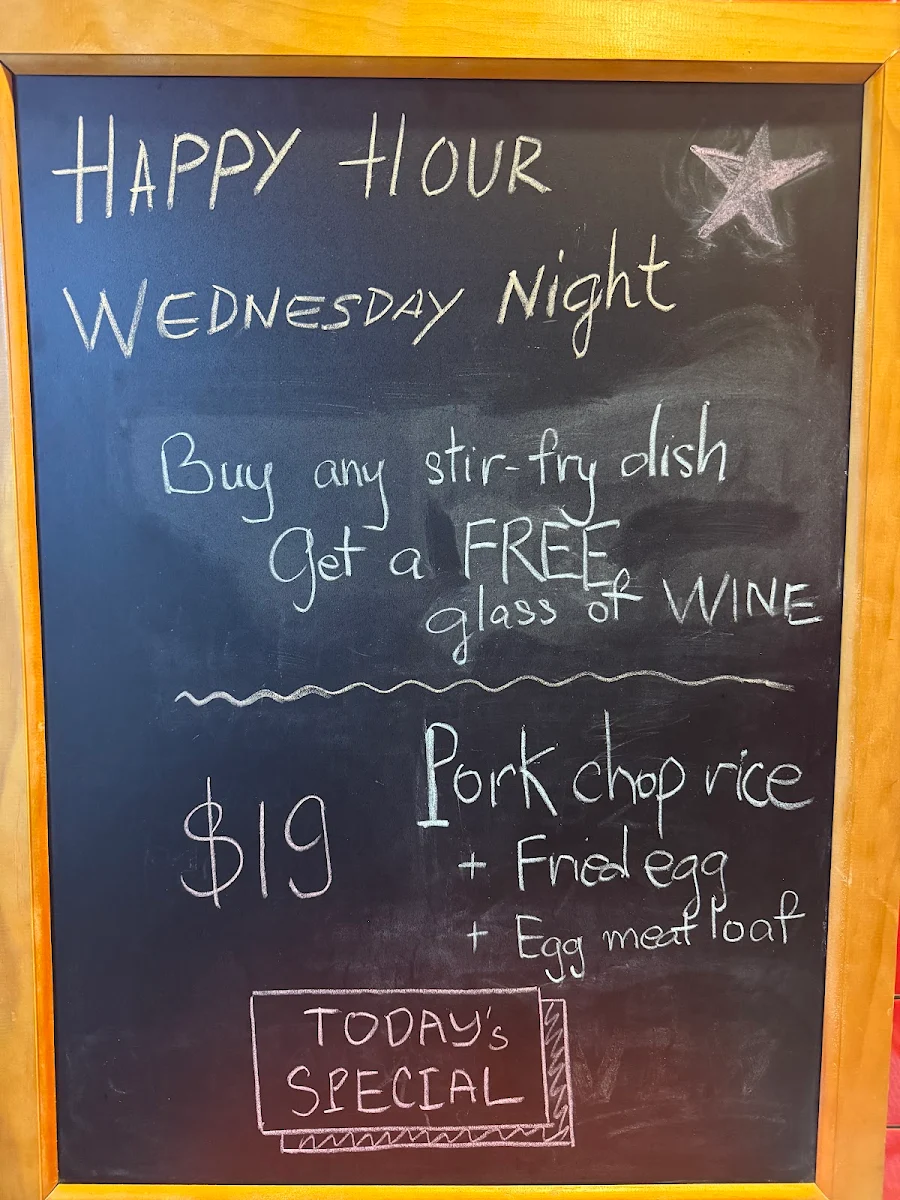 HAPPY HOUR
WEDNESDAY Night
Buy any stir-fry dish
Get a FREE
glass of WINE
$19
Pork chop rice
+ Fried egg
+ Egg meat loaf
TODAY's
SPECIAL